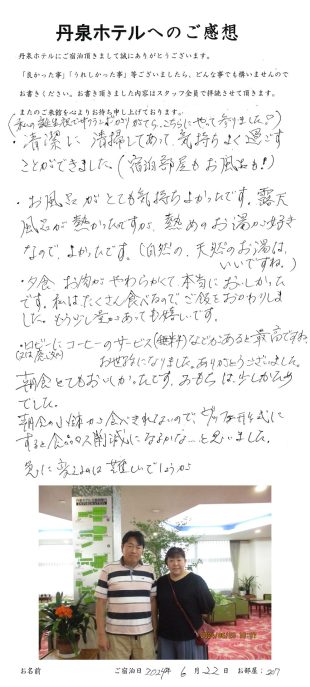 丹泉ホテルへのご感想
丹泉ホテルにご宿泊頂きまして誠にありがとうございます。
「良かった事」「うれしかった事」等ございましたら、どんな事でも構いませんので
お書きください。お書き頂きました内容はスタッフ全員で拝読させて頂きます。
またのご来館を心よりお待ち申し上げております。
こちらにやって参りました
・清潔に清掃してあって、気持ちよく過ごす
ことができました。(宿泊部屋もお風呂も!)
・お風呂がとても気持ちよかったです。露天
風呂が熱かったですが、熱めのお湯が好き
なので、よかったです。(自然の、天然のお湯は、
いいですね。)
・夕食、お肉がやわらかくて、本当においしかった
です。私はたくさん食べるのでご飯をおかわりしま
した。もう少し量があっても嬉しいです。
・ロビーにコーヒーのサービス(無料)などがあると最高ですね
お世話になりました。ありがとうございました。
朝食とてもおいしかったです。おもちは少しかため
でした。
朝食の小鉢が食べきれないので、
すると食品ロス削減になるかな…と思いました。
急に変えるのは難しいでしょうが
お名前 ご宿泊日 2024年 6月 22日 お部屋: 207